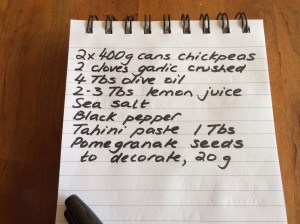 2x400g cans chickpeas
2 cloves garlic crushed
4 Tbs olive oil
2-3 Tbs lemon juice
Sea salt
Black pepper
Tahini paste 1 Tbs
Pomegranate seeds
to decorate, 20g